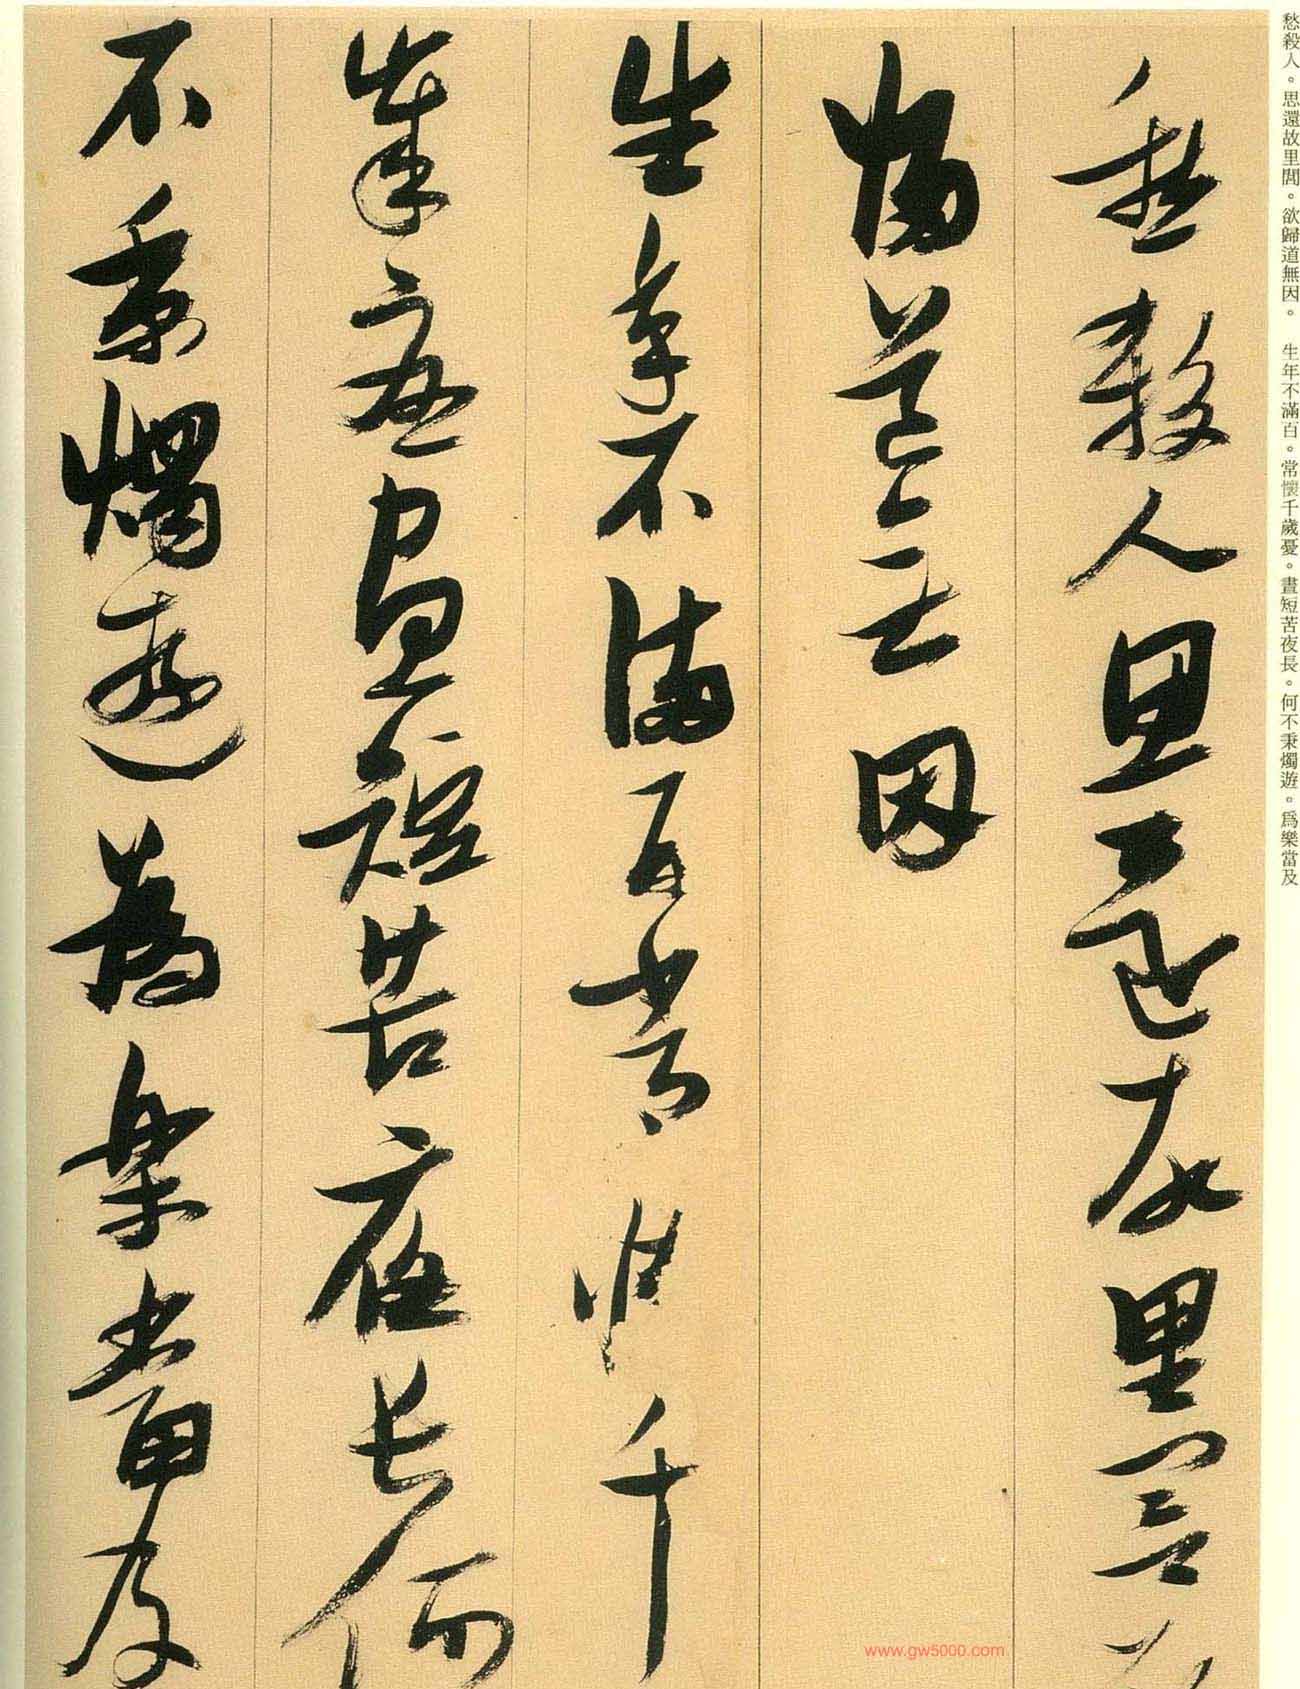 愁殺人。思還故里閭。欲歸道無因。　生年不滿百。常懷千歲憂。晝短苦夜長。何不秉燭遊。爲樂當及
愁殺人思還故里閭欲
歸道無因
生年不滿百常懷千
歲憂晝短苦夜長何
不秉燭遊為樂當及
www.gw5000.com